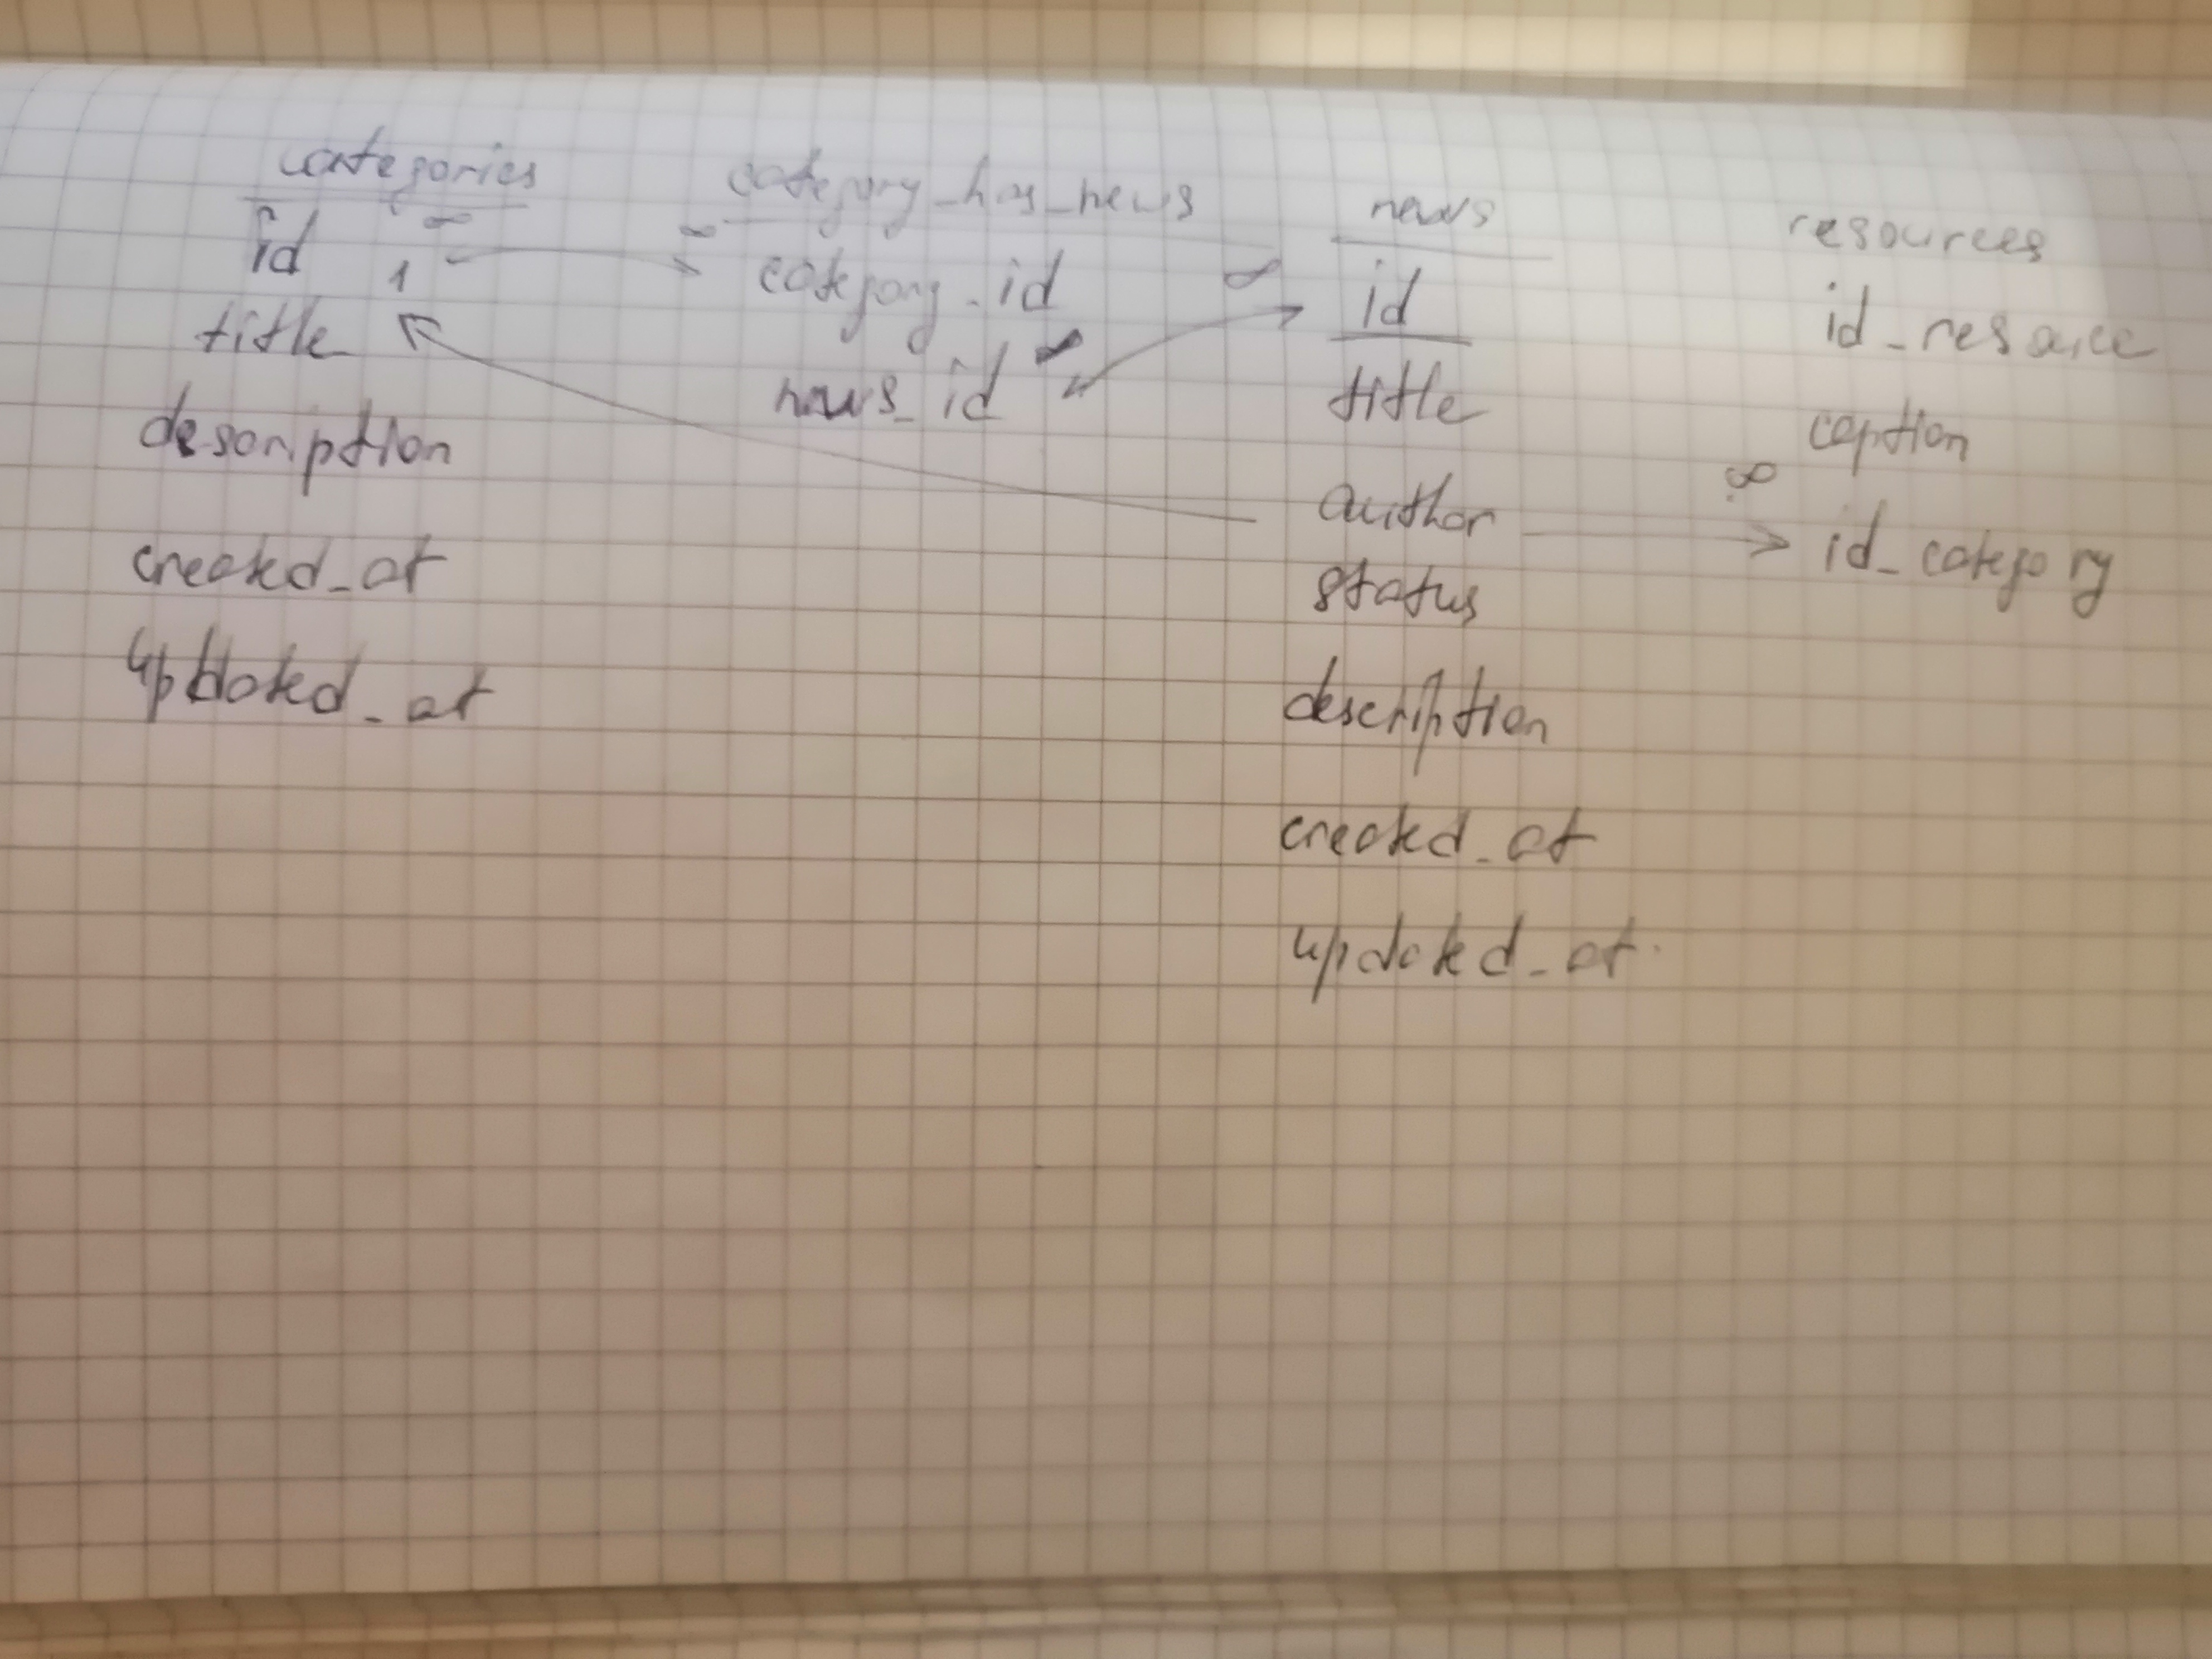 categories
id 1 ∞
title
description
created_at
updated_at
category_has_news
∞ category_id
news_id ∞
news
∞ id
title
author
status
description
created_at
updated_at
resources
id_resource
caption
∞
id_category